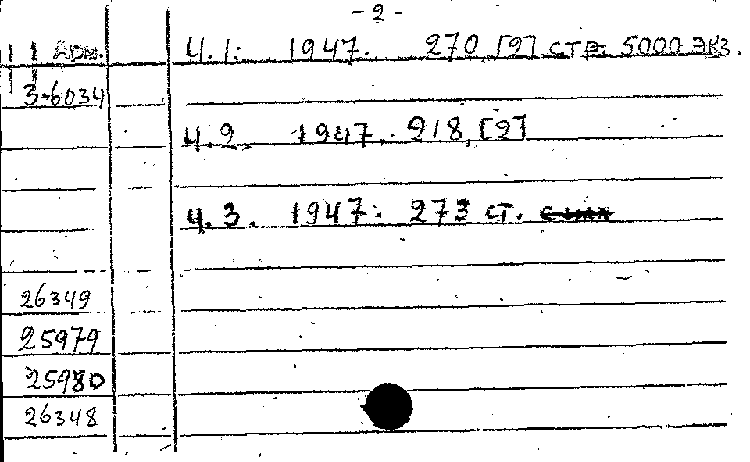 - 2 -
Арм. Ч.1. 1947. 270, [2] стр. 5000 экз.
3-6034
Ч.2. 1947. 218, [2]
Ч.3. 1947. 273 ст.
26349
25979
25980
26348